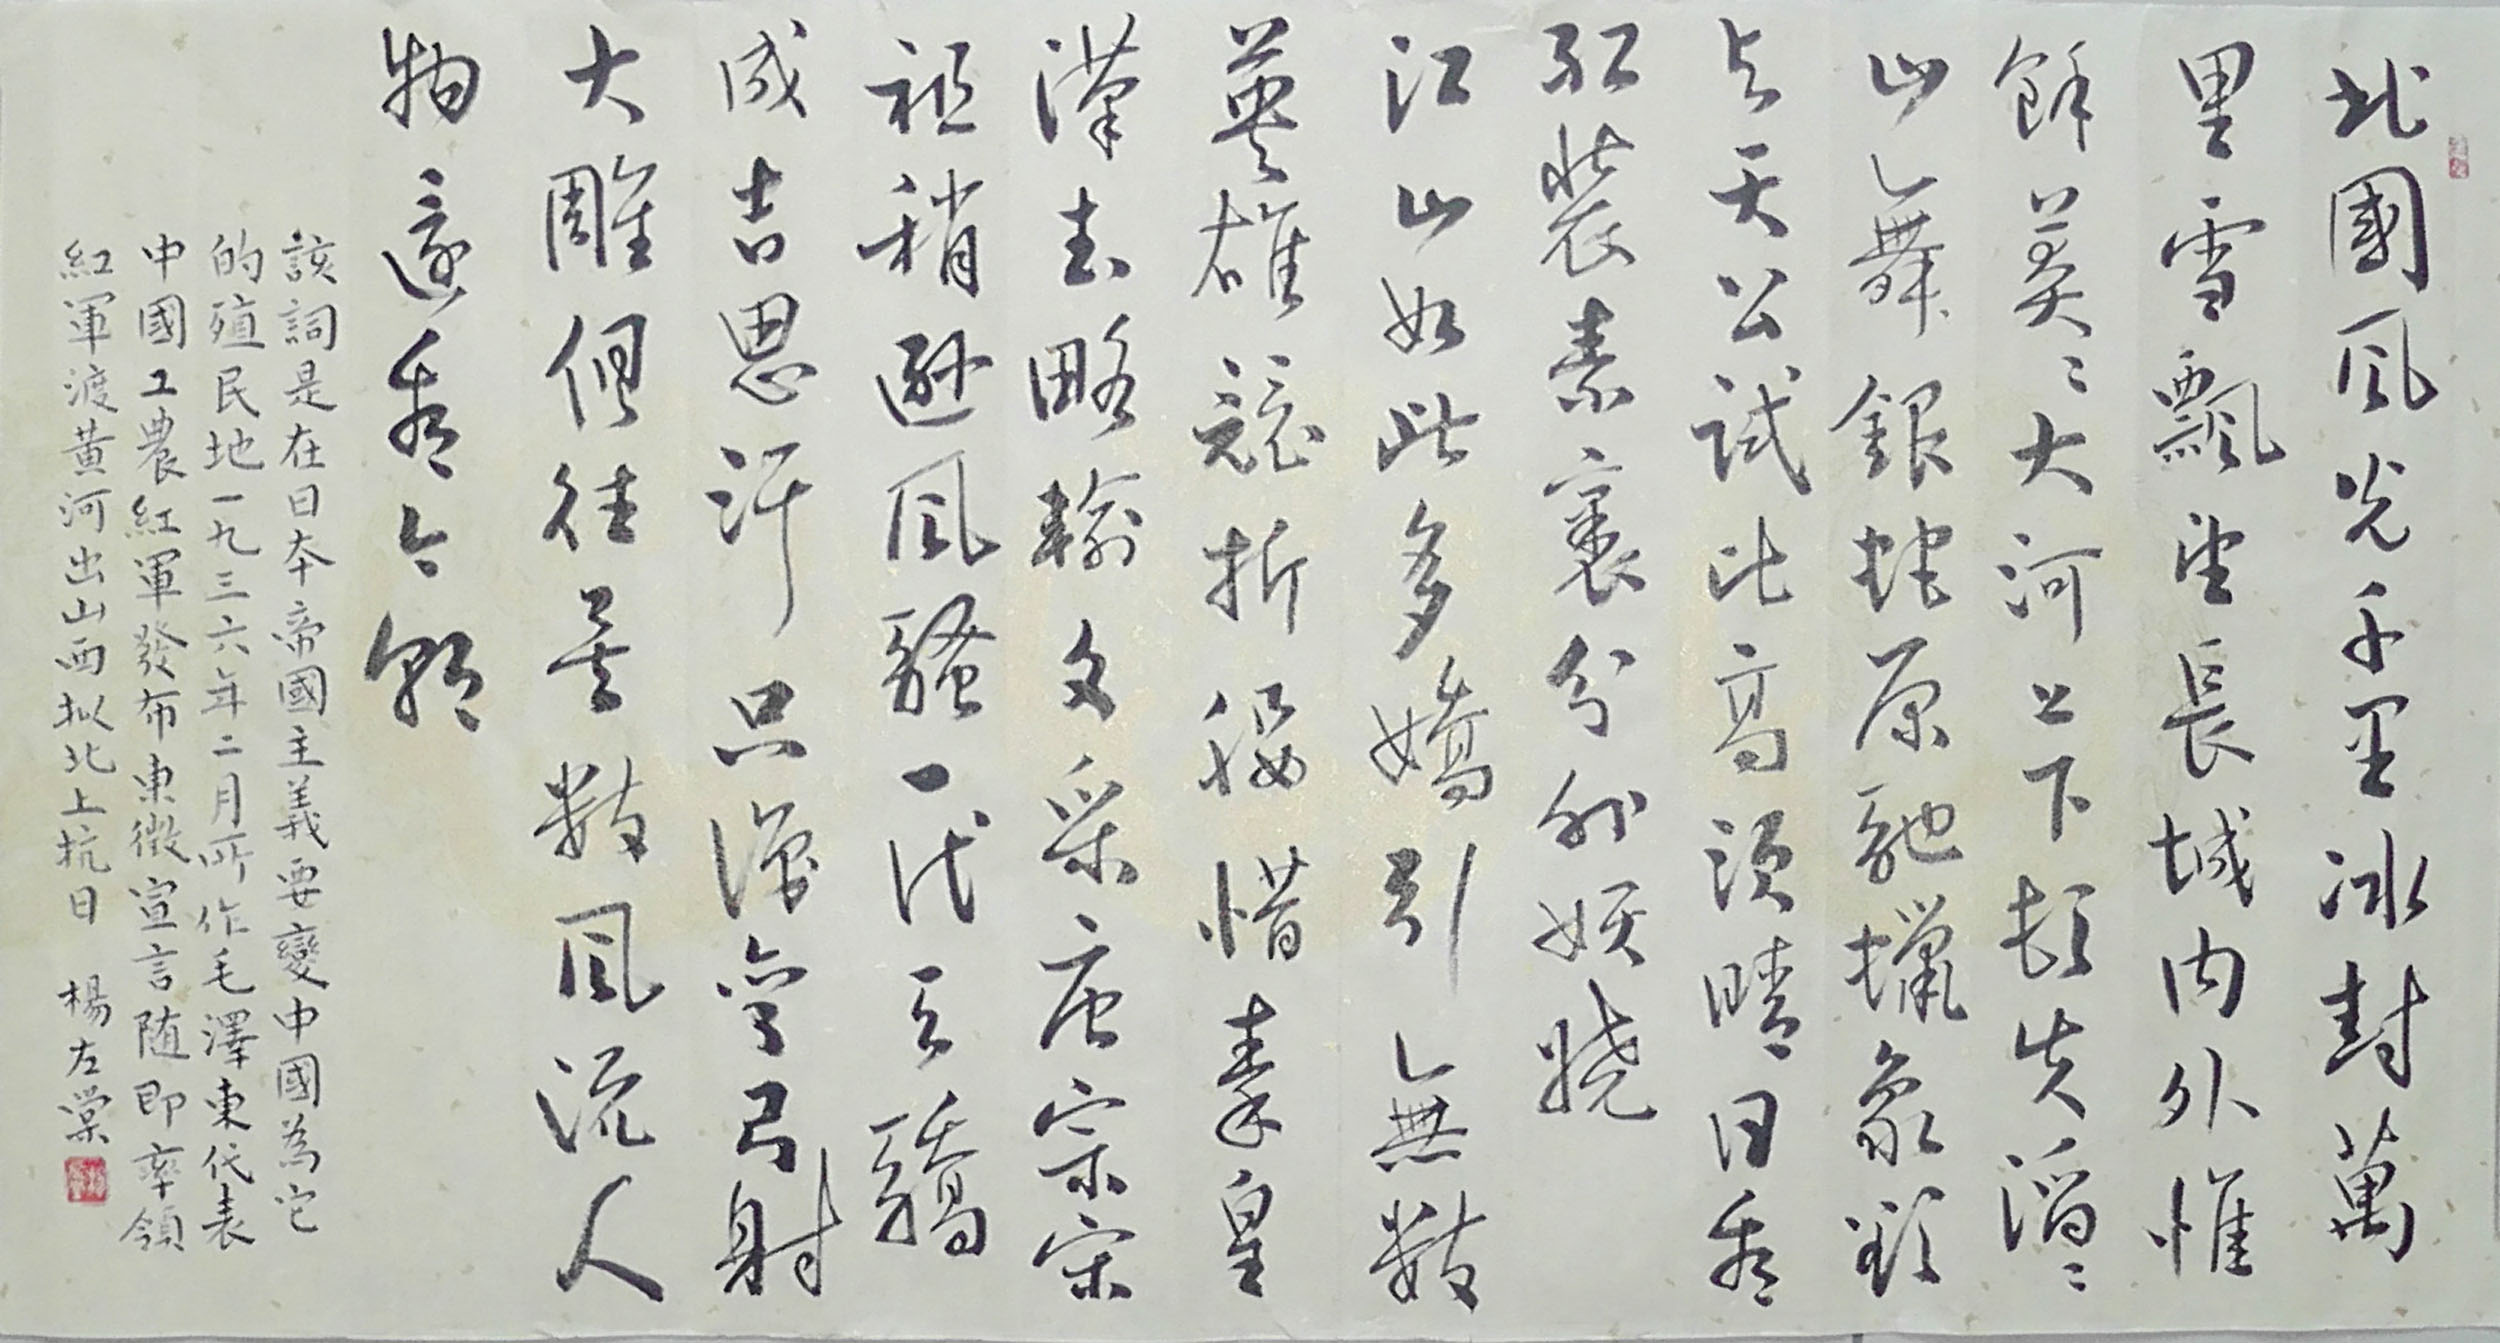 北國風光千里冰封萬
里雪飄望長城內外惟
餘莽〻大河上下頓失滔〻
山乀舞銀蛇原馳蠟象欲
与天公試比高須晴日看
紅裝素裹分外妖嬈
江山如此多嬌引乀無數
英雄競折腰惜秦皇
漢武略輸文采唐宗宋
祖稍遜風騷一代天驕
成吉思汗只識彎弓射
大雕俱往矣數風流人
物還看今朝
該詞是在日本帝國主義要變中國為它
的殖民地一九三六年二月所作毛澤東代表
中國工農紅軍發布東徵宣言随即率領
紅軍渡黃河出山西拟北上抗日 楊左棠